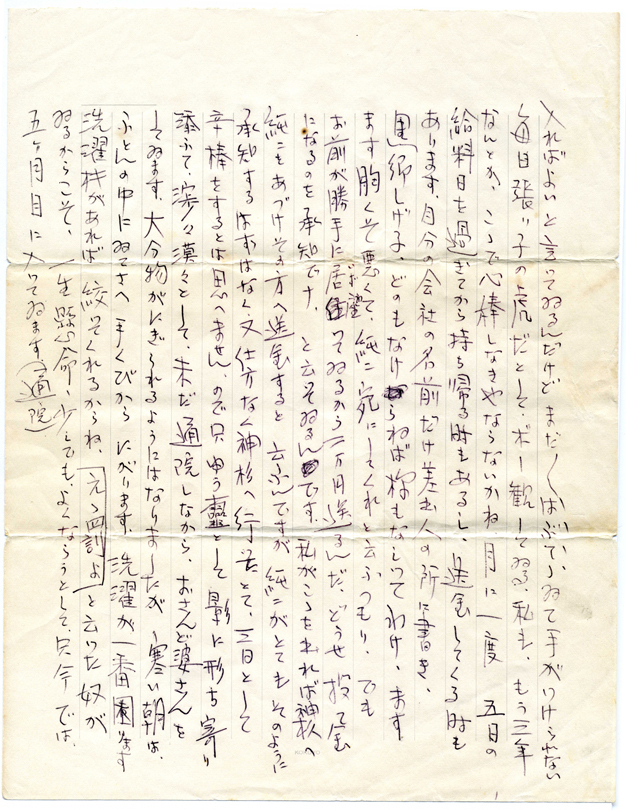 入ればよいと言ってゐるんだけど まだまだしばふてゐて手がつけられない
毎日張り子の虎だとして、ボー観してゐる、私も、もう三年
なんとか、こゝで心棒しなきやならないかね 月に一度 五日の
給料日を過ぎてから持ち帰る時もあるし、送金してくる時も
あります、自分の会社の名前だけ差出人の所に書き、
黒柳しげ子、どのもなけらねば様もなしってわけ、ます
ます胸くそ悪くて、純に宛にしてくれと云ふつもり、でも
お前が勝手に居座ってゐるから一万円送るんだ、どうせ投金
になるのを承知でナ、と云ってゐるんです、私がこうたれれば神杉へ
純こをあづけその方へ送金すると云ふんですが 純こがとてもそのように
承知するはずはなく、又仕方なく神杉へ行ったとて、三日として
辛棒をするとは思へません、ので只申う霊として影に形ち寄り
添ふて、漠々として、未だ通院しながら、おさんど婆さんを
してゐます、大分物がにぎられるようにはなりましたが 寒い朝は、
ふとんの中にゐてさへ 手くびから にがります、洗濯が一番困ります
洗濯キがあれば 絞ってくれるからね、と云った奴が
ゐるからこそ、一生懸命、少しでも、よくならうとして、只今では、
五ヶ月目に入ってゐます、通院